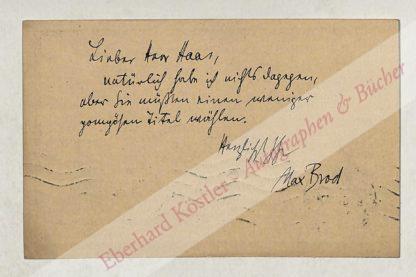 Lieber Herr Haas,
natürlich habe ich nichts dagegen,
aber Sie müssen einen weniger
pompösen Titel wählen.
Herzlichst Ihr
Max Brod
Eberhard Köstler - Autographen & Bücher